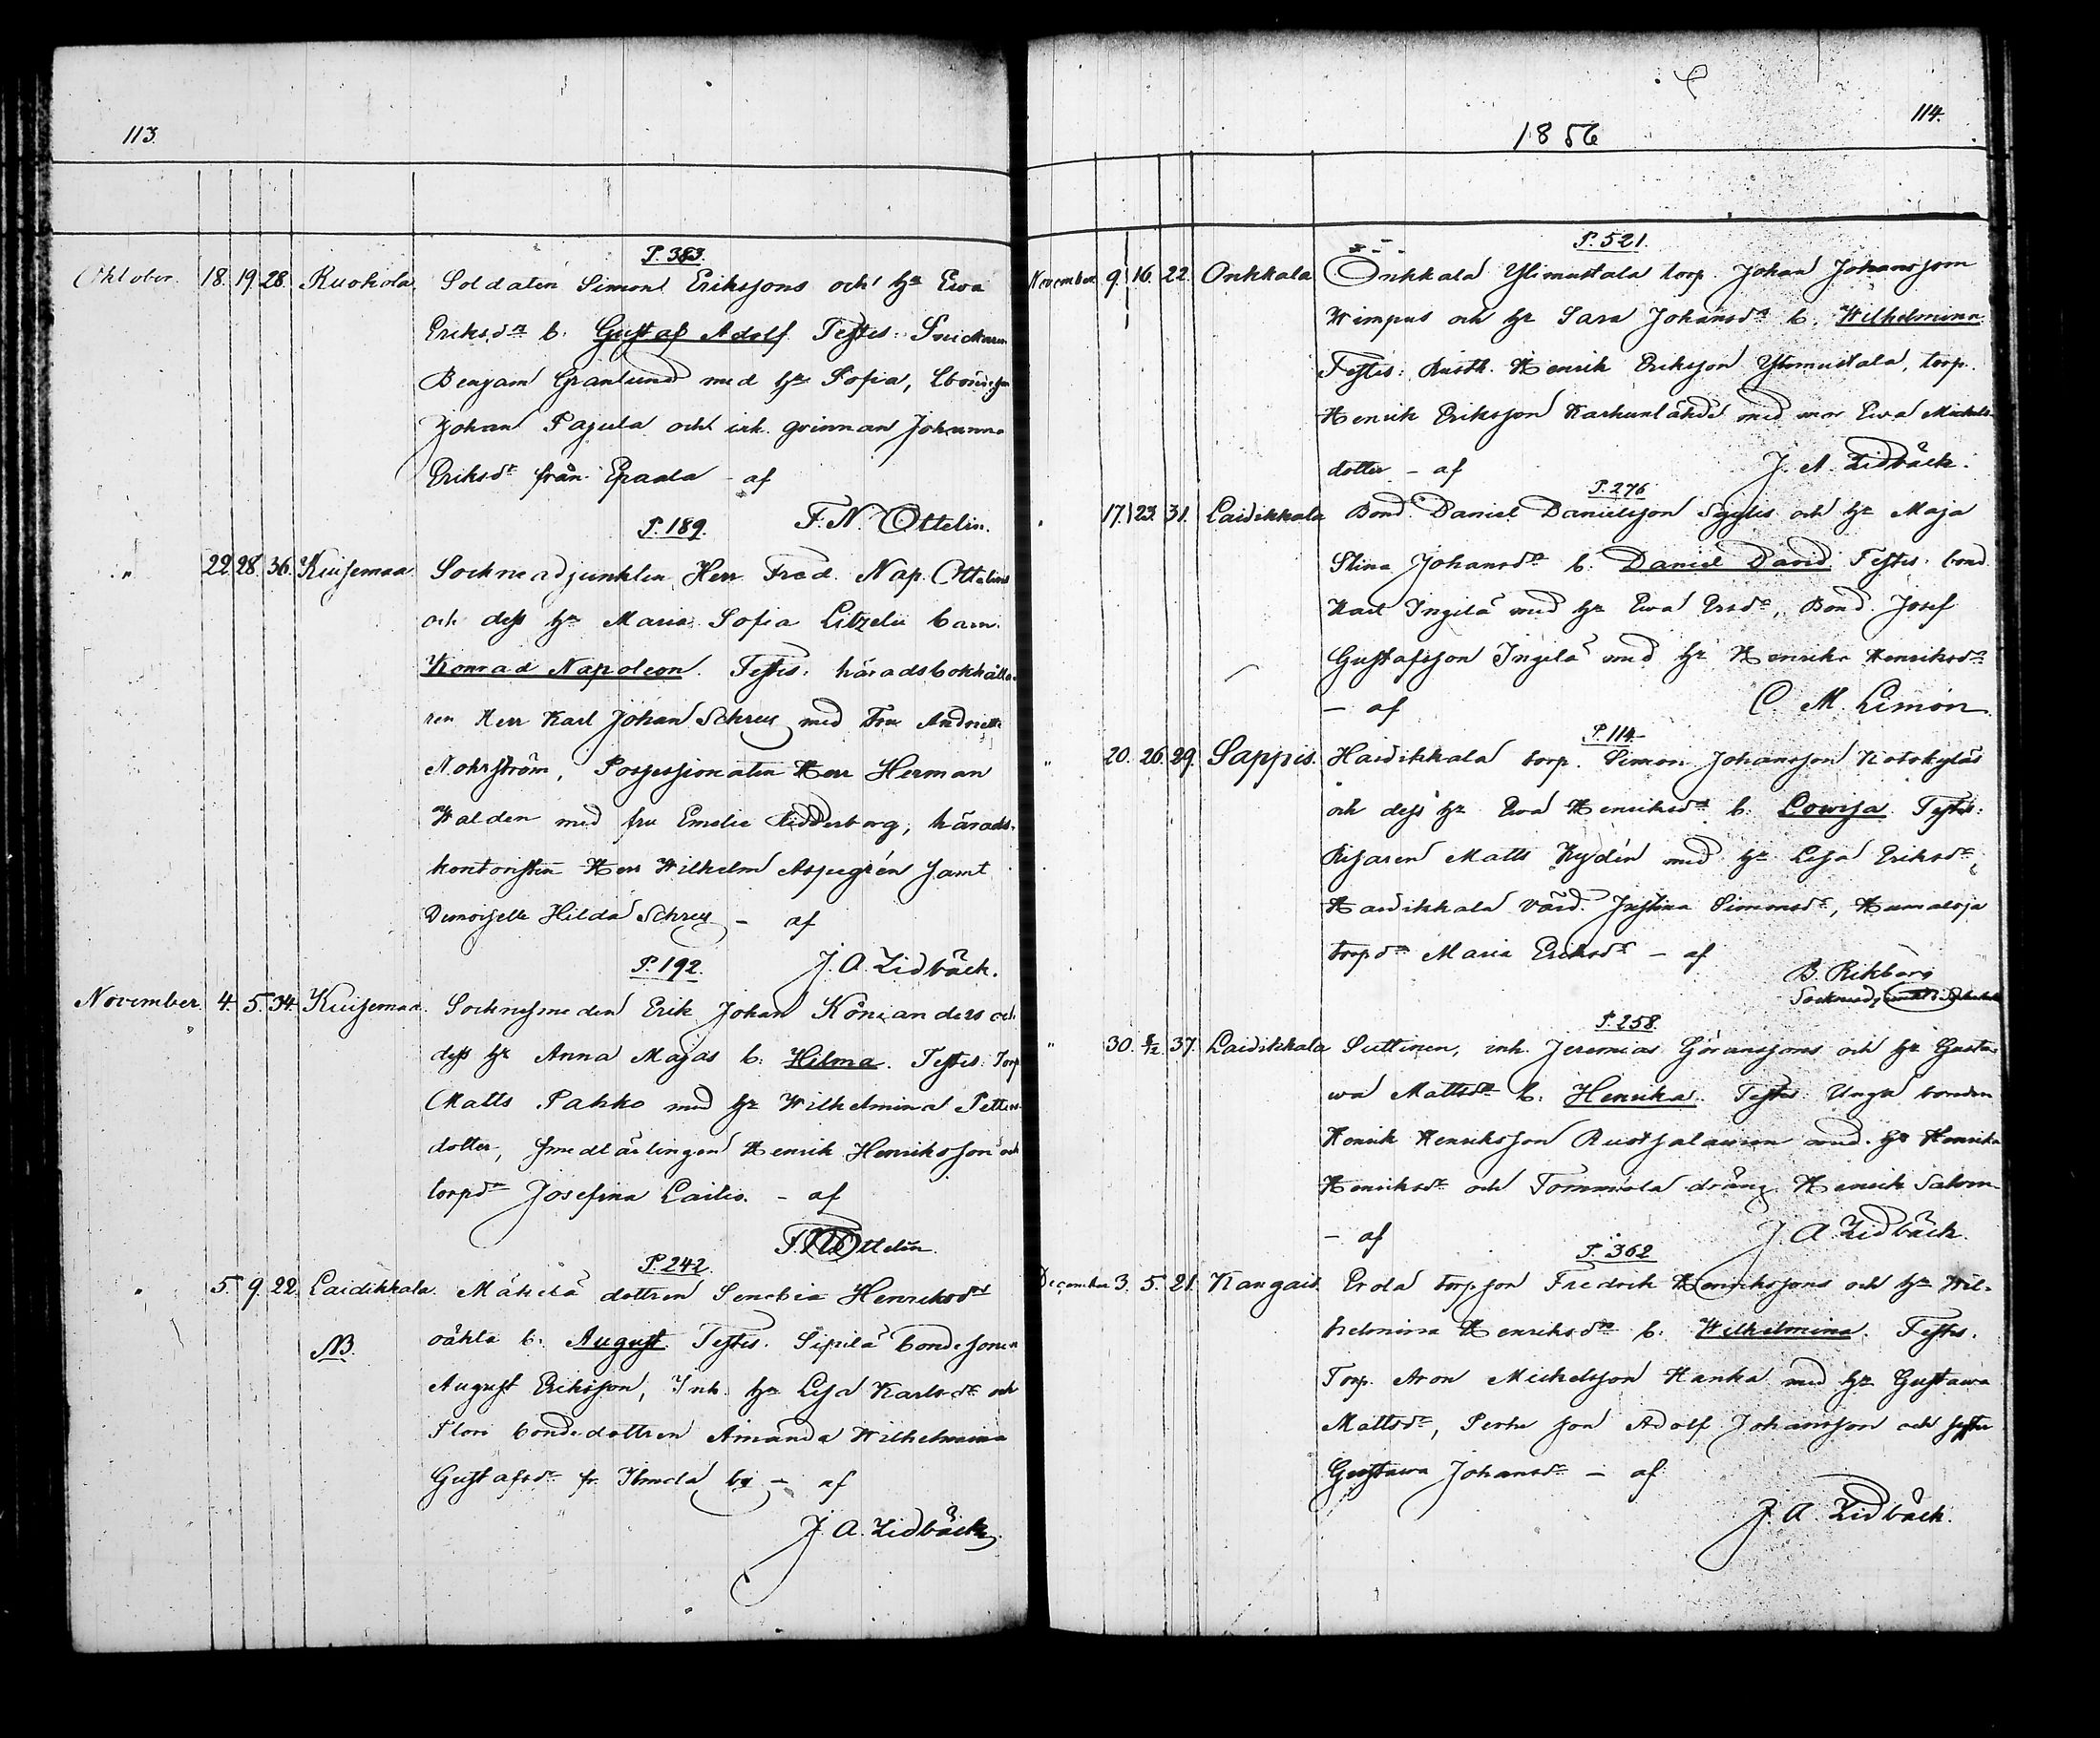 113.
P. 383.
Oktober. 18. 19. 28. Ruokola. Soldaten Simon Erikssons och hr Ewa
Eriksdr b. Gustaf Adolf Testes: Snickaren
Benjam Granlund med hr Sofia,
Johan Pajula och ink. qvinnan Johanna
Eriksdr från Epaala - af
F. N. Ottelin.
P. 189.
" 22 28 36. Kuisemaa Sockneadjunkten Herr Fred. Nap. Ottelins
och dess hr Maria Sofia Litzelii barn
Konrad Napoleon. Testes: häradsbokhålla-
ren Herr Karl Johan Schreij med Fru Andriette
Nohrström, Possessionaten Herr Herman
Walden med fru Emelie Ridderborg, härads-
kontoristen Herr Wilhelm Aspegrén samt
Demoiselle Hilda Schreij - af
J. A. Lidbäck.
P. 192.
November. 4. 5. 34. Kuisemaa. Socknesmeden Erik Johan Könianders och
dess hr Anna Majas b. Hilma. Testes: Torp
Matts Pahko med hr Wilhelmina Petters-
dotter, smedlärlingen Henrik Henriksson och
torpdr Josefina Lailio. - af
F. N. Ottelin.
P. 242.
" 5. 9. 22. Laidikkala. Mäkelä dottren Serafia Henriksdrs
NB. oäkta b. August. Testes. Sipilä bondesonen
August Eriksson, Inh. hr Lisa Karlsdr och
Flori bondedottren Amanda Wilhelmina
Gustafsdr fr. Ilmela by - af
J. A. Lidbäck.
114.
1856
P. 521.
November 9. 16. 22. Onkkala Onkkala Ylimustala torp. Johan Johansson
Wimpus och hr Sara Johansdr b. Wilhelmina
Testes: Rusth. Henrik Eriksson Ylimustala, torp.
Henrik Eriksson Karhunlähde med mor Ewa Michels-
dotter - af J. A. Lidbäck.
P. 276
" 17. 23. 31. Laidikkala Bond. Daniel Danielsson Syylis och hr Maja
Stina Johansdr b. Daniel David Testes. bond.
Karl Ingilä med hr Ewa Ersdr, Bond. Josef
Gustafsson Ingilä med hr Henrika Henriksdr
- af C. M. Limón.
P. 114.
" 20. 26. 29. Sappis. Haidikkala torp. Simon Johansson Kotokyläs
och dess hr Ewa Henriksdr b. Lowisa Testes:
Ryssaren Matts Rydén med hr Lisa Eriksdr,
Haidikkala värd. Justina Simonsdr, Humaloja
torpdr Maria Eriksdr - af
B. Rikberg
P. 258.
" 30. 5/12 37. Laidikkala Suttinen, inh. Jeremias Göranssons och hr Gusta-
wa Mattsdr b. Henrika. Testes: Unga bonden
Henrik Henriksson med hr Henrika
Henriksdr och Tommola dräng Henrik Salom-
- af J. A. Lidbäck.
P. 362
December 3. 5. 21. Kangais. Erola torpson Fredrik Henrikssons och hr Wil-
helmina Henriksdrs b. Wilhelmina. Testes.
Torp. Aron Michelsson Hanka med hr Gustawa
Mattsdr, Perhe son Adolf Johansson och syster
Gustawa Johansdr - af
J. A. Lidbäck.